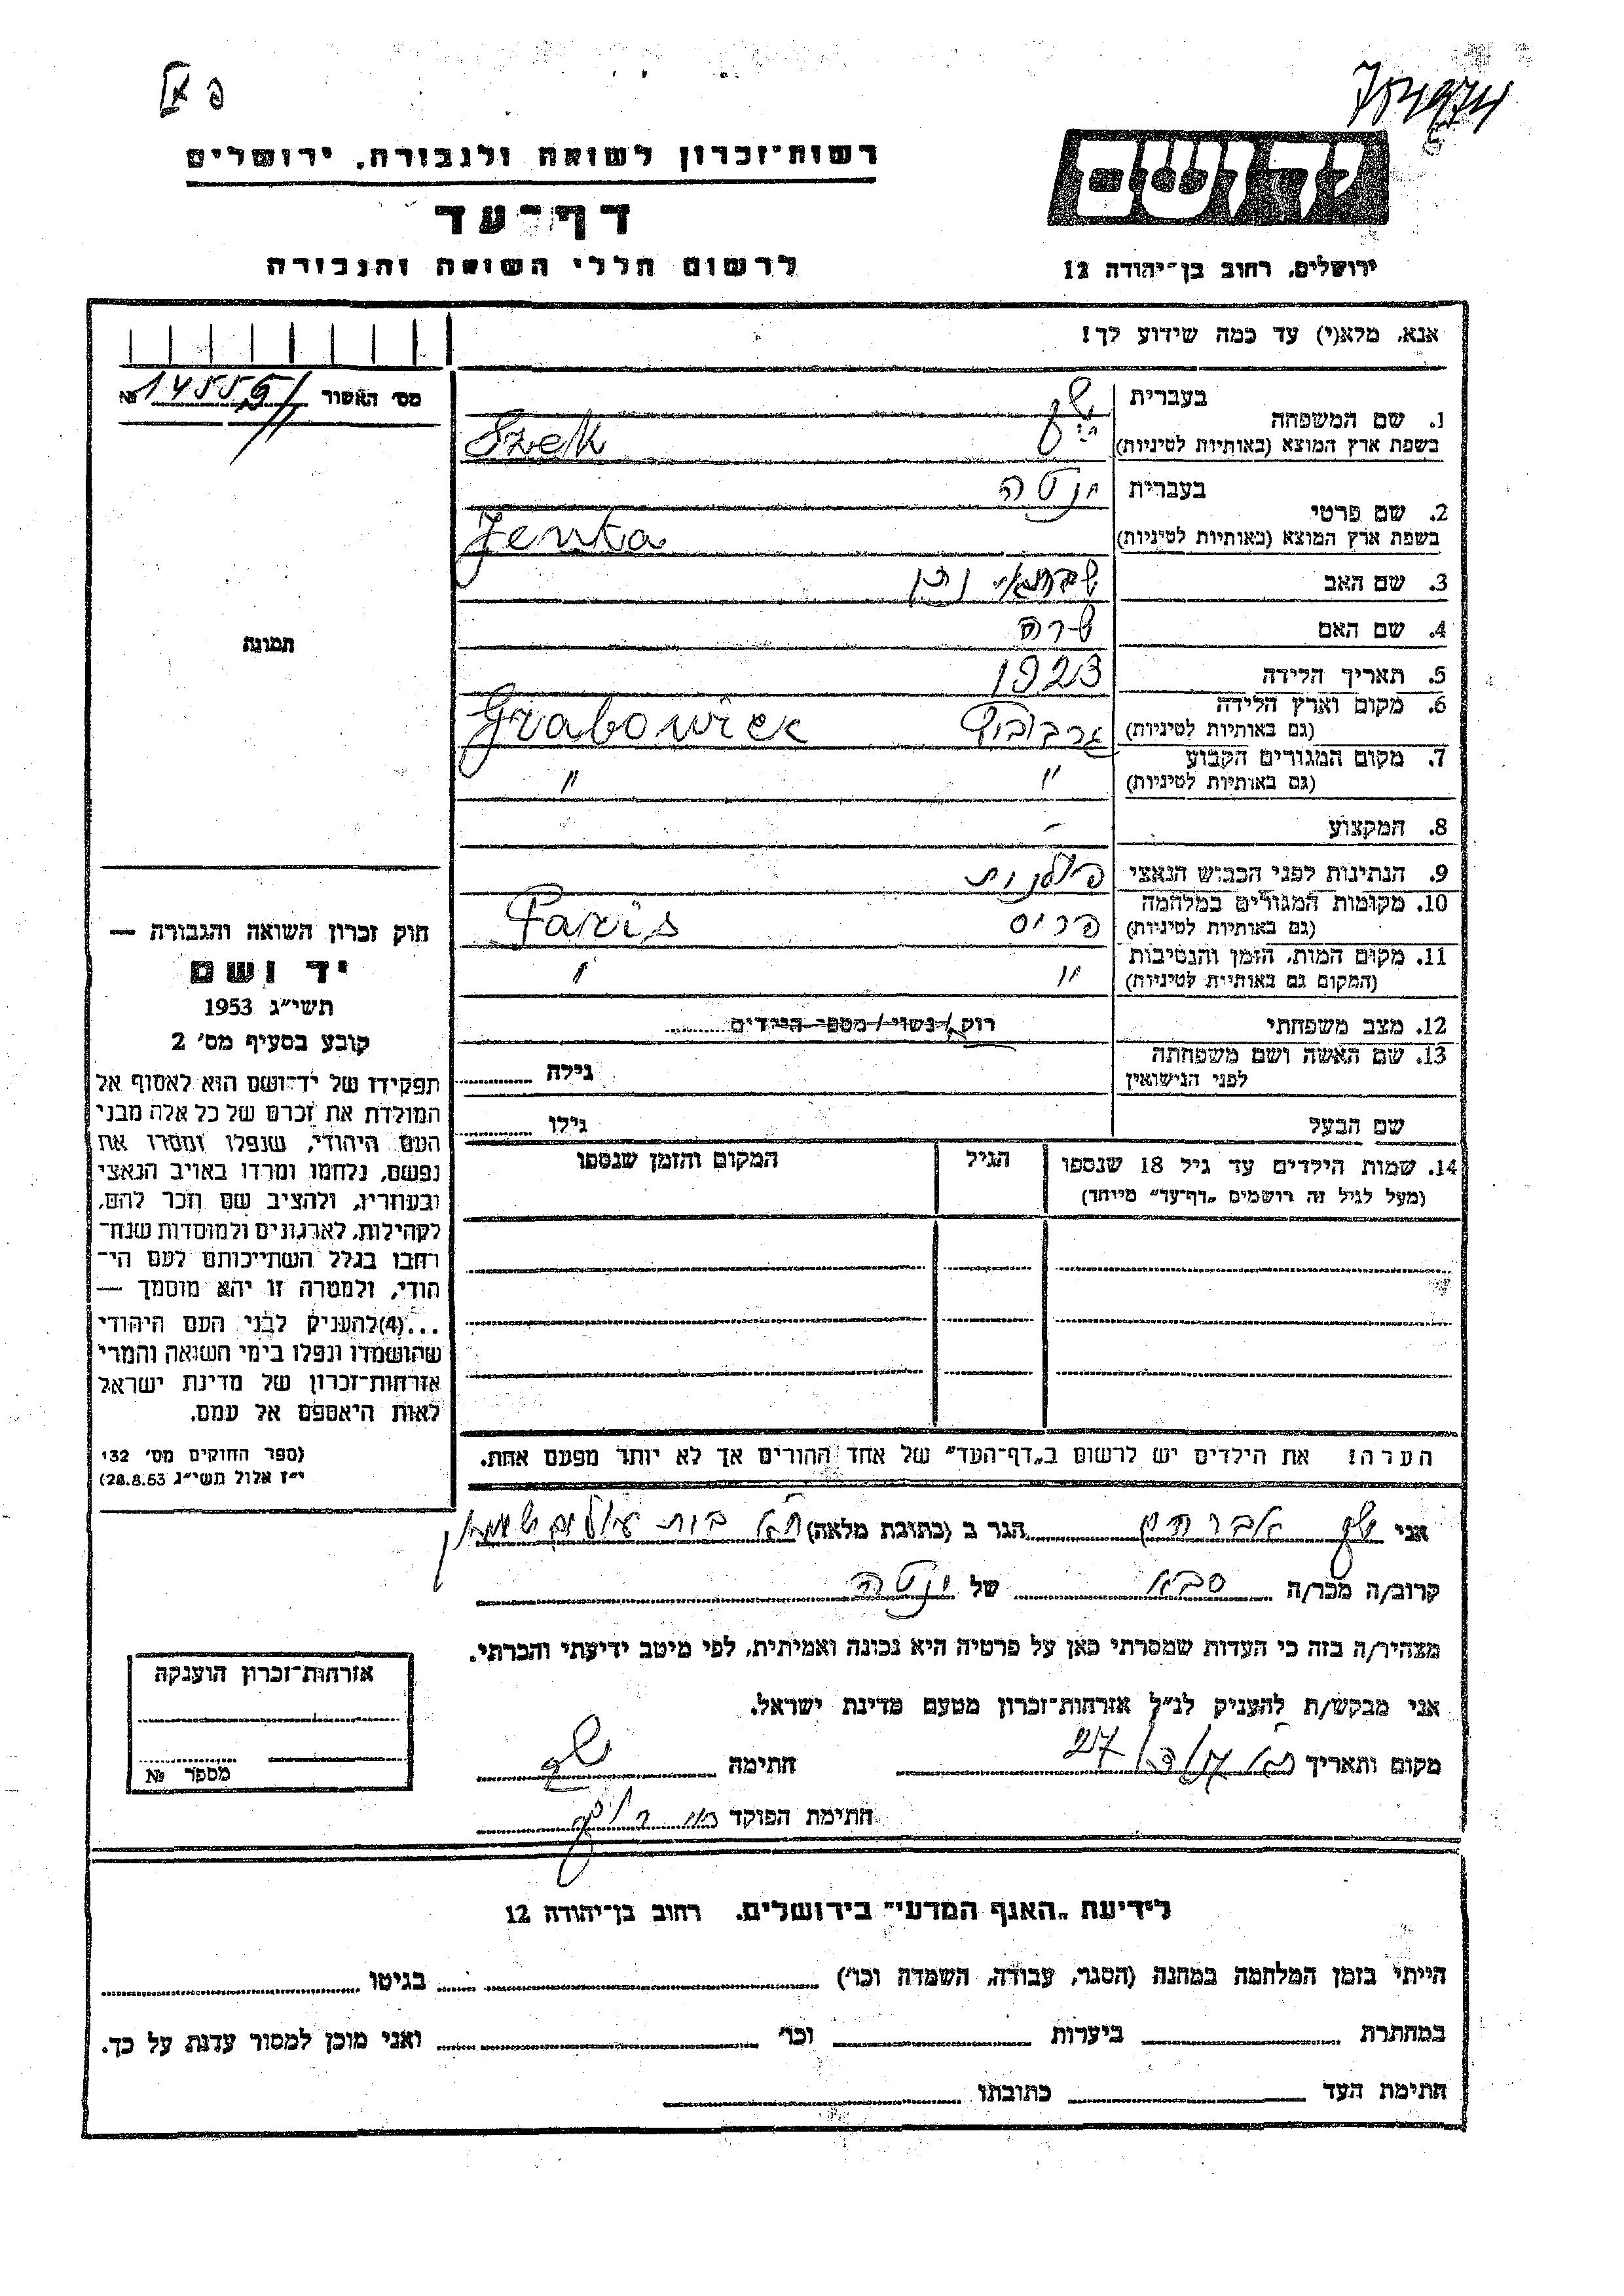 פ אל
רשות-זכרון לשואה ולגבורה, ירושלים
דף-עד
לרשום חללי השואה והגבורה
יד ושם
ירושלים, רחוב בן-יהודה 12
אנא, מלא(י) עד כמה שידוע לך!
מס' האשור №
1. שם המשפחה בעברית שק
בשפת ארץ המוצא (באותיות לטיניות) Szek
2. שם פרטי בעברית ינטה
בשפת ארץ המוצא (באותיות לטיניות) Jenta
3. שם האב שבתאי
4. שם האם שרה
5. תאריך הלידה 1923
6. מקום וארץ הלידה
(גם באותיות לטיניות) גרבוביץ Grabowiec
7. מקום המגורים הקבוע
(גם באותיות לטיניות) " "
8. המקצוע -
9. הנתינות לפני הכבוש הנאצי פולנית
10. מקומות המגורים במלחמה
(גם באותיות לטיניות) פריס Paris
11. מקום המות, הזמן והנסיבות
(המקום גם באותיות לטיניות) " "
12. מצב משפחתי רווק / נשוי / מספר הילדים
13. שם האשה ושם משפחתה
לפני הנישואין גילה
שם הבעל גילו
14. שמות הילדים עד גיל 18 שנספו הגיל המקום והזמן שנספו
(מעל לגיל זה רושמים "דף-עד" מיוחד)
הערה! את הילדים יש לרשום ב"דף-העד" של אחד ההורים אך לא יותר מפעם אחת.
תמונה
חוק זכרון השואה והגבורה —
יד ושם
תשי"ג 1953
קובע בסעיף מס' 2
תפקידו של יד-ושם הוא לאסוף אל
המולדת את זכרם של כל אלה מבני
העם היהודי, שנפלו ומסרו את
נפשם, נלחמו ומרדו באויב הנאצי
ובעוזריו, ולהציב שם וזכר להם,
לקהילות, לארגונים ולמוסדות שנח-
רבו בגלל השתייכותם לעם הי-
הודי, ולמטרה זו יהא מוסמך —
...(4)להעניק לבני העם היהודי
שהושמדו ונפלו בימי השואה והמרי
אזרחות-זכרון של מדינת ישראל
לאות היאספם אל עמם.
(ספר החוקים מס' 132
י"ז אלול תשי"ג 28.8.53)
אני שק אברהם הגר ב (כתובת מלאה)
קרוב/ה מכר/ה סבא של ינטה
מצהיר/ה בזה כי העדות שמסרתי כאן על פרטיה היא נכונה ואמיתית, לפי מיטב ידיעתי והכרתי.
אני מבקש/ת להעניק לנ"ל אזרחות-זכרון מטעם מדינת ישראל.
מקום ותאריך חתימה שק
חתימת הפוקד
אזרחות-זכרון הוענקה
מספר №
לידיעת "האגף המדעי" בירושלים. רחוב בן-יהודה 12
הייתי בזמן המלחמה במחנה (הסגר, עבודה, השמדה וכו') בגיטו
במחתרת ביערות וכו' ואני מוכן למסור עדות על כך.
חתימת העד כתובתו